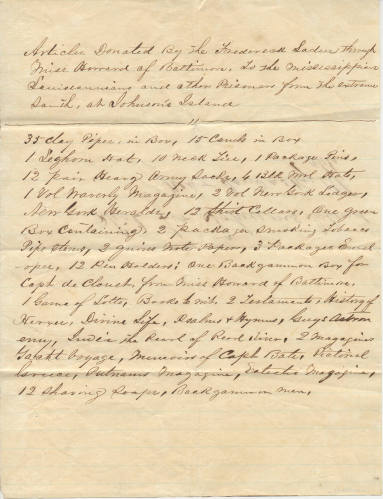 Articles Donated By the Frederick Ladies through
Miss Howard of Baltimore. To the Mississippian
Louisiannians and other Prisoners from the extreme
South, at Johnson's Island
35 Clay Pipes, in Box, 15 Combs in Box
1 Leghorn Hat, 10 Neck Ties, 1 Package Pins,
12 pair Heavy Army Socks, 4 Blk Wool Hats,
1 Vol Waverly Magazine, 2 Vol New York Ledger,
New York Heralds, 12 Shirt Collars, One green
Box Containing 2 packages Smoking Tobacco
Pipe Stems, 2 quires Note Paper, 3 Packages Envel
opes, 12 Pen Holders; One Backgammon Box for
Capt. de Clouet, from Miss Howard of Baltimore,
1 Game of Lotto, Books to wit. 2 Testaments, History of
Divine Life, Psalms & Hymns, Guys Astron
omy, the Pearl of Pearl River, 2 Magazines
Yacht Voyage, Memoirs of Capt Bate, National
Putnams Magazine, Eclectic Magazine,
12 Shaving Soaps, Backgammon men.